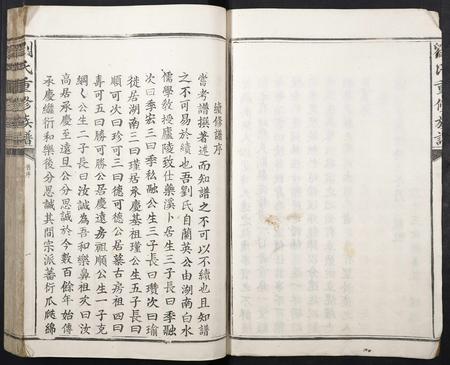 劉氏重修族譜
續修譜序
嘗考譜撰著述而知譜之不可以不續也且知譜
之不可易於續也吾劉氏自蘭英公由湖南白水
儒學教授廬陵致仕藥溪卜居生三子長曰季融
次曰季宏三曰季私融公生二子長曰瓚次曰瑜
徙居湖南三曰瑾居承慶基祖瑾公生五子長曰
順可次曰珍可三曰德可德公居墓古房祖四曰
壽可五曰勝可勝公居慶遠房祖順公生一子克
綱綱公生二子長曰汝誠為吾和樂鼻祖次曰汝
高居承慶至遠旦公分思誠於今數百餘年始傳
承慶繼衍和樂後分思誠其間宗派蕃衍瓜瓞綿
劉氏重修族譜